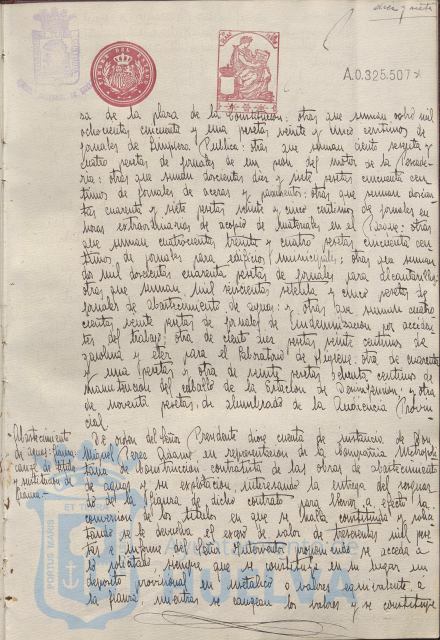 diez y siete
TIMBRE DEL ESTADO
A.0.325.507*
sa de la plaza de la Constitucion: otras que suman ocho mil
ochocientas cincuenta y una pesetas veinte y cinco centimos de
jornales de Limpieza Publica: otras que suman ciento sesenta y
cuatro pesetas de jornales de un peon del motor de la Pescade-
ria: otras que suman doscientas diez y siete pesetas cincuenta cen-
timos de jornales de aceras y pavimentos: otras que suman doscien-
tas cuarenta y siete pesetas veinte y cinco centimos de jornales en
horas extraordinarias de acopio de materiales en el Paseo: otras
que suman cuatrocientas treinta y cuatro pesetas cincuenta cen-
timos de jornales para edificios municipales: otras que suman
dos mil doscientas cuarenta pesetas de jornales para alcantarillas:
otras que suman mil seiscientas setenta y cinco pesetas de
jornales de abastecimiento de aguas: y otras que suman cuatro
cientas veinte pesetas de jornales de Indemnizacion por acciden-
tes del trabajo: otra de ciento diez pesetas veinte centimos de
gasolina y eter para el laboratorio de Higiene: otra de cuarenta
y una pesetas y otra de veinte pesetas ochenta centimos de
manutencion del caballo de la Estacion de Desinfeccion: y otra
de noventa pesetas, de alumbrado de la Audiencia Provin-
cial.
Abastecimiento
de aguas: fianza:
canje de titulos
y sustitucion de
fianza.
De orden del Señor Presidente dione cuenta de instancia de Don
Miguel Perez en representacion de la Compañia Metropoli-
tana de Construccion contratista de las obras de abastecimiento
de aguas y su explotacion, interesando la entrega del resguar-
do de la fianza de dicho contrato para llevar a efecto la
conversion de los titulos en que se halla constituida y solici-
tando se le devuelva el exceso de valor de trescientas mil pese-
tas e informe del Señor Interventor proponiendo se acceda a
lo solicitado, siempre que se constituya en su lugar un
deposito provisional en metalico o valores equivalente a
la fianza, mientras se canjean los valores y se constituye
PORTUS MARIS ET TERRAE
HUELVA